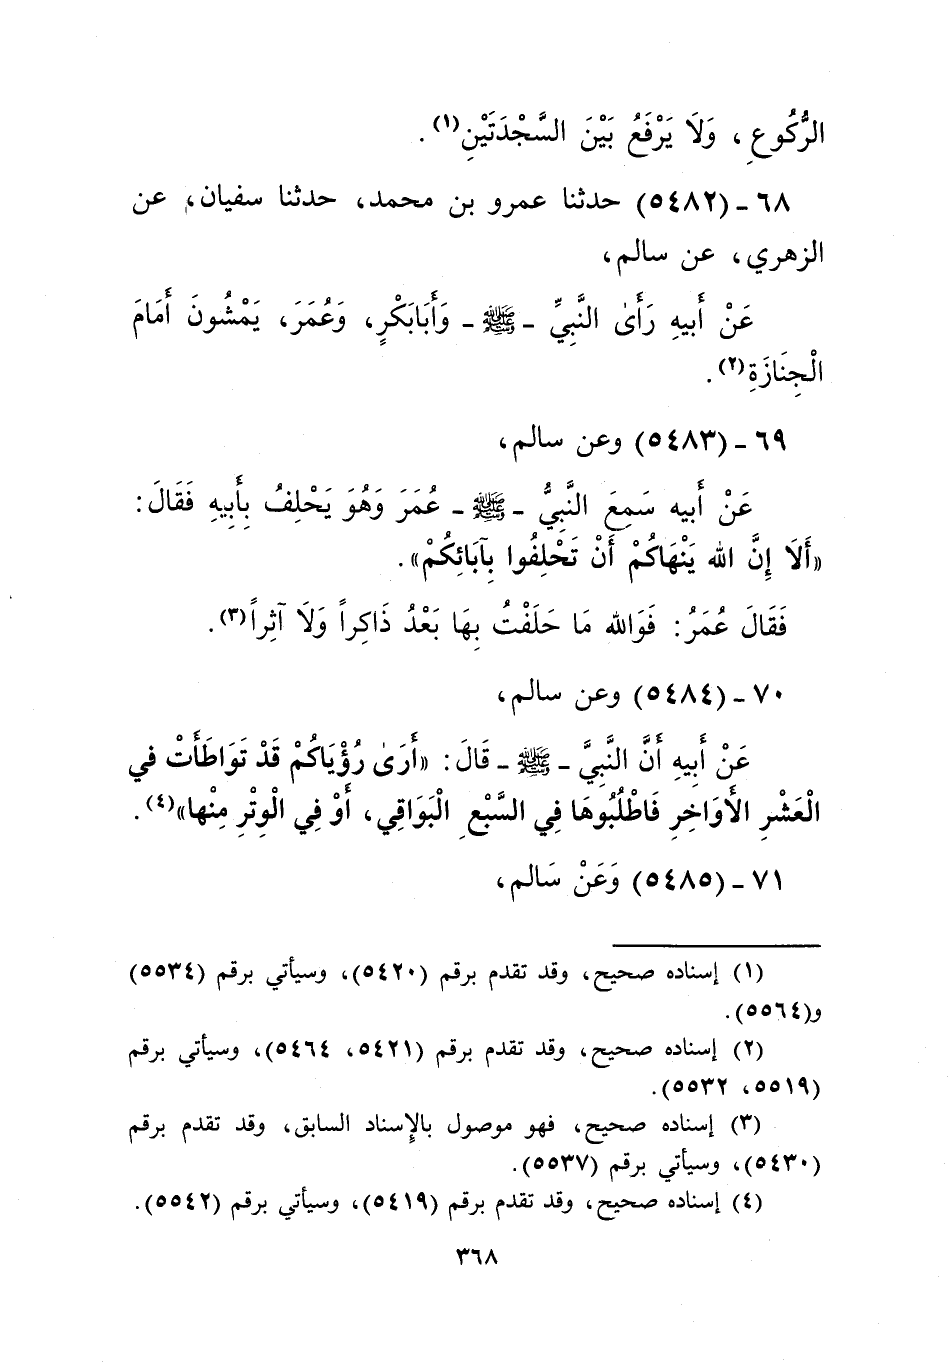 الرُّكُوعِ، وَلَا يَرْفَعُ بَيْنَ السَّجْدَتَيْنِ(١).
٦٨ ـ (٥٤٨٢) حدثنا عمرو بن محمد، حدثنا سفيان، عن
الزهري، عن سالم،
عَنْ أَبيهِ رَأَىٰ النَّبِيِّ ـ ﷺ ـ وَأَبَابَكْرٍ، وَعُمَرَ، يَمْشُونَ أَمَامَ
الْجِنَازَةِ(٢).
٦٩ ـ (٥٤٨٣) وعن سالم،
عَنْ أَبيه سَمِعَ النَّبِيُّ ـ ﷺ ـ عُمَرَ وَهُوَ يَحْلِفُ بِأَبِيهِ فَقَالَ:
«أَلَا إِنَّ الله يَنْهَاكُمْ أَنْ تَحْلِفُوا بِآبَائِكُمْ».
فَقَالَ عُمَرُ: فَوَالله مَا حَلَفْتُ بِهَا بَعْدُ ذَاكِراً وَلَا آثِراً(٣).
٧٠ ـ (٥٤٨٤) وعن سالم،
عَنْ أَبِيهِ أَنَّ النَّبِيَّ ـ ﷺ ـ قَالَ: «أَرَىٰ رُؤْيَاكُمْ قَدْ تَوَاطَأَتْ في
الْعَشْرِ الأَوَاخِرِ فَاطْلُبُوهَا فِي السَّبْعِ الْبَوَاقِي، أَوْ فِي الْوِتْرِ مِنْها»(٤).
٧١ ـ (٥٤٨٥) وَعَنْ سَالم،
(١) إسناده صحيح، وقد تقدم برقم (٥٤٢٠)، وسيأتي برقم (٥٥٣٤)
و(٥٥٦٤).
(٢) إسناده صحيح، وقد تقدم برقم (٥٤٢١، ٥٤٦٤)، وسيأتي برقم
(٥٥١٩، ٥٥٣٢).
(٣) إسناده صحيح، فهو موصول بالإسناد السابق، وقد تقدم برقم
(٥٤٣٠)، وسيأتي برقم (٥٥٣٧).
(٤) إسناده صحيح، وقد تقدم برقم (٥٤١٩)، وسيأتي برقم (٥٥٤٢).
٣٦٨